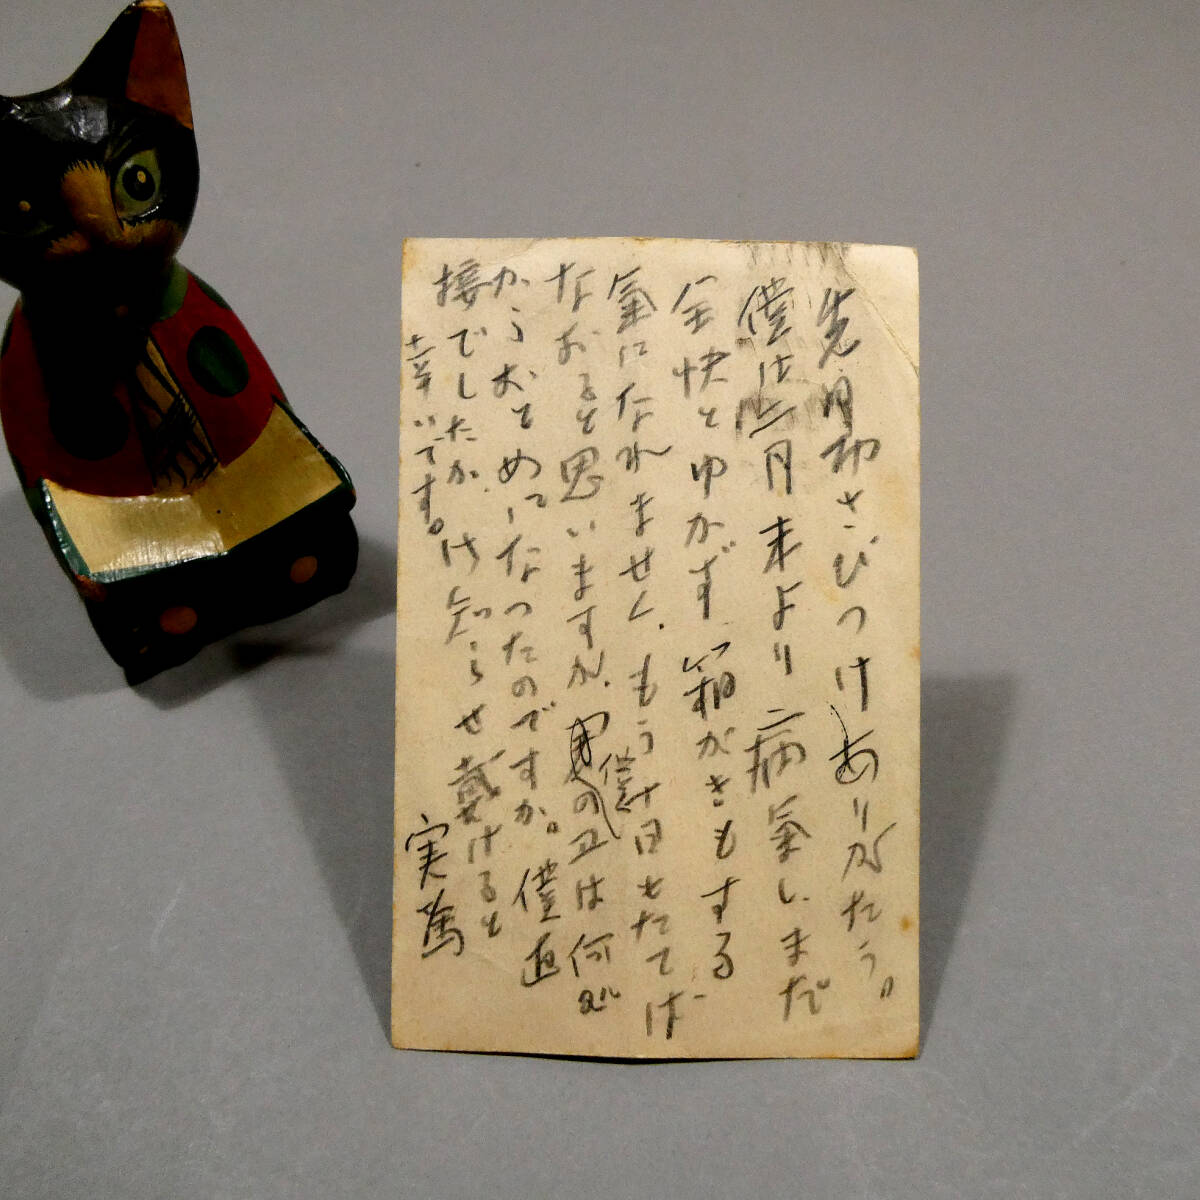 先月わさびつけありがたう。
僕は三月末より病気しまだ
全快とゆかず 箱がきもする
氣になれません、もう十日もたてば
なおると思いますが、僕の
は何処
からおもとめになつたのですか。僕直
接でしたか、け知らせ戴けると
幸いです。
実篤